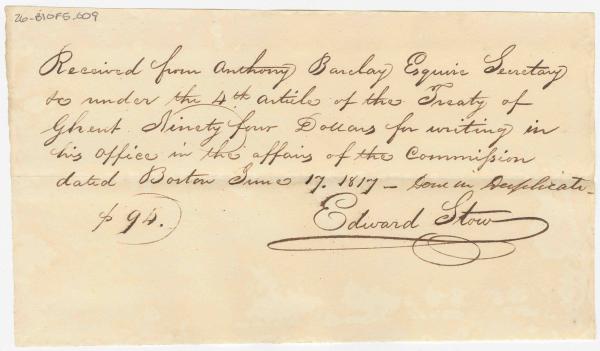 26-BIOFS-609
Received from Anthony Barclay Esquire Secretary
&c under the 4th article of the Treaty of
Ghent Ninety four Dollars for writing in
his Office in the affairs of the Commission
dated Boston June 17. 1817 – Done in Duplicate –
$94.
Edward Stow